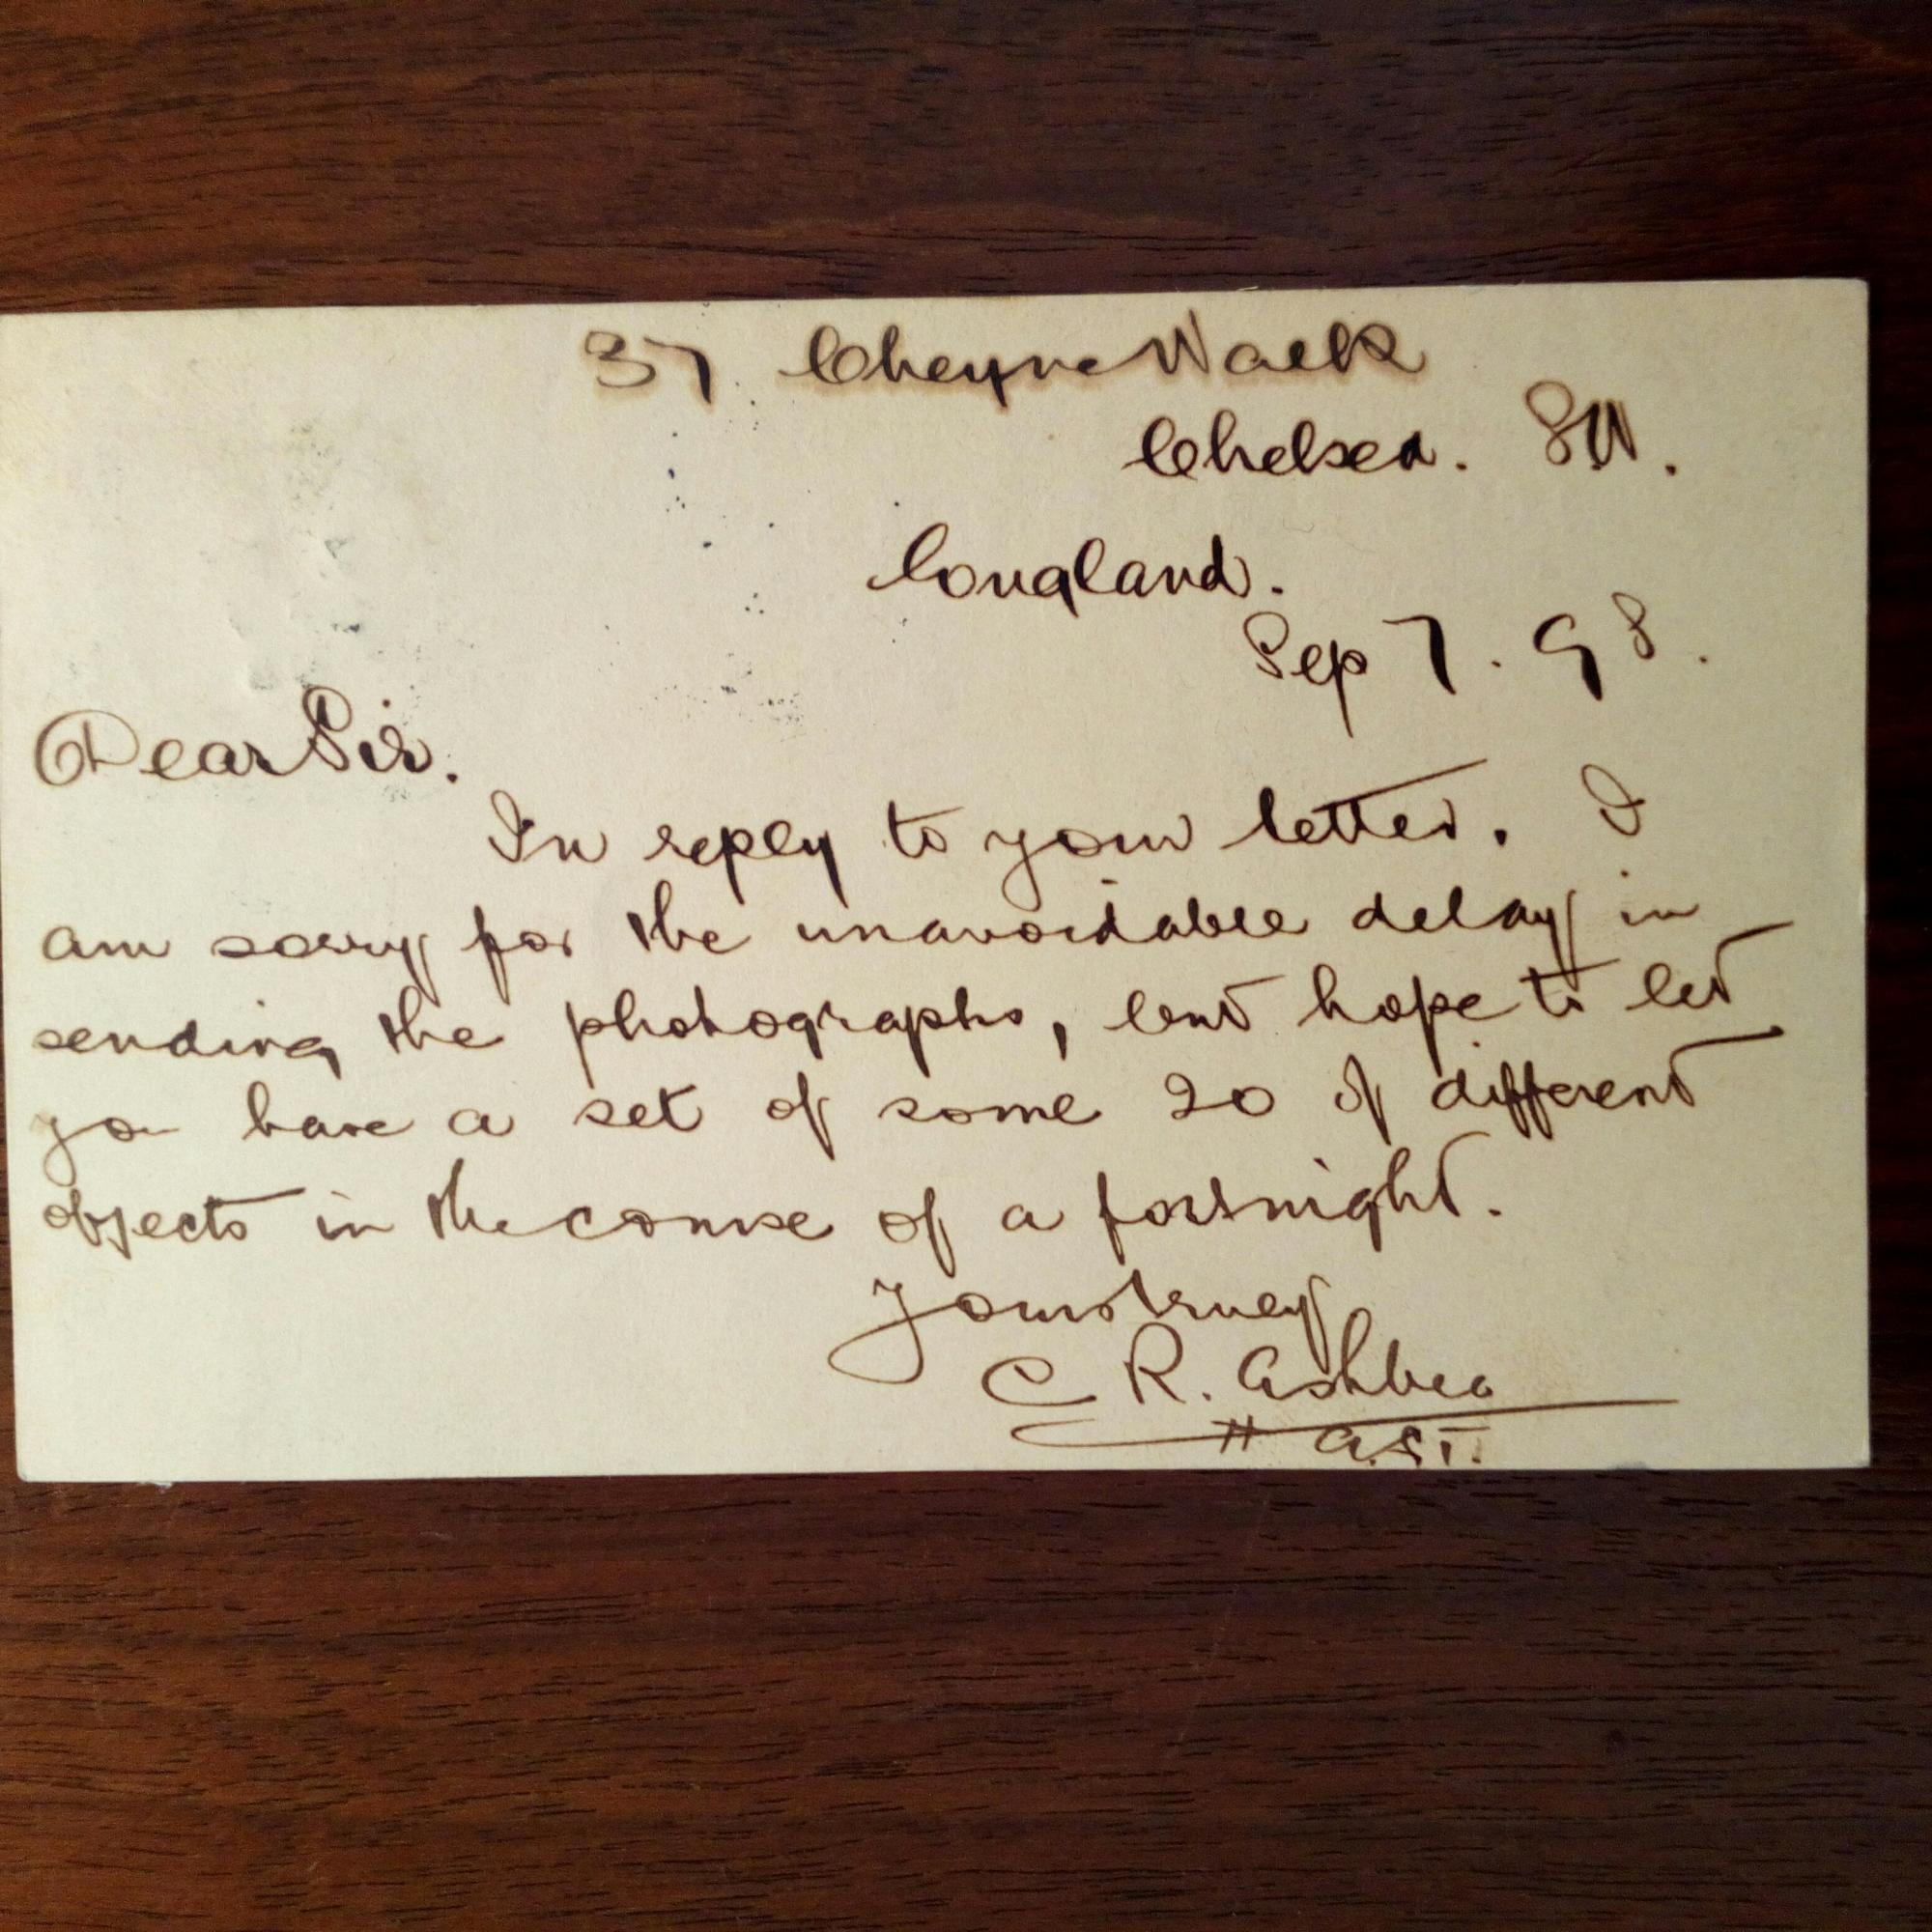 37 Cheyne Walk
Chelsea. SW.
England.
Sep 7. 98.
Dear Sir.
In reply to your letter. I
am sorry for the unavoidable delay in
sending the photographs, but hope to let
you have a set of some 20 of different
objects in the course of a fortnight.
Yours truly
C R. Ashbee